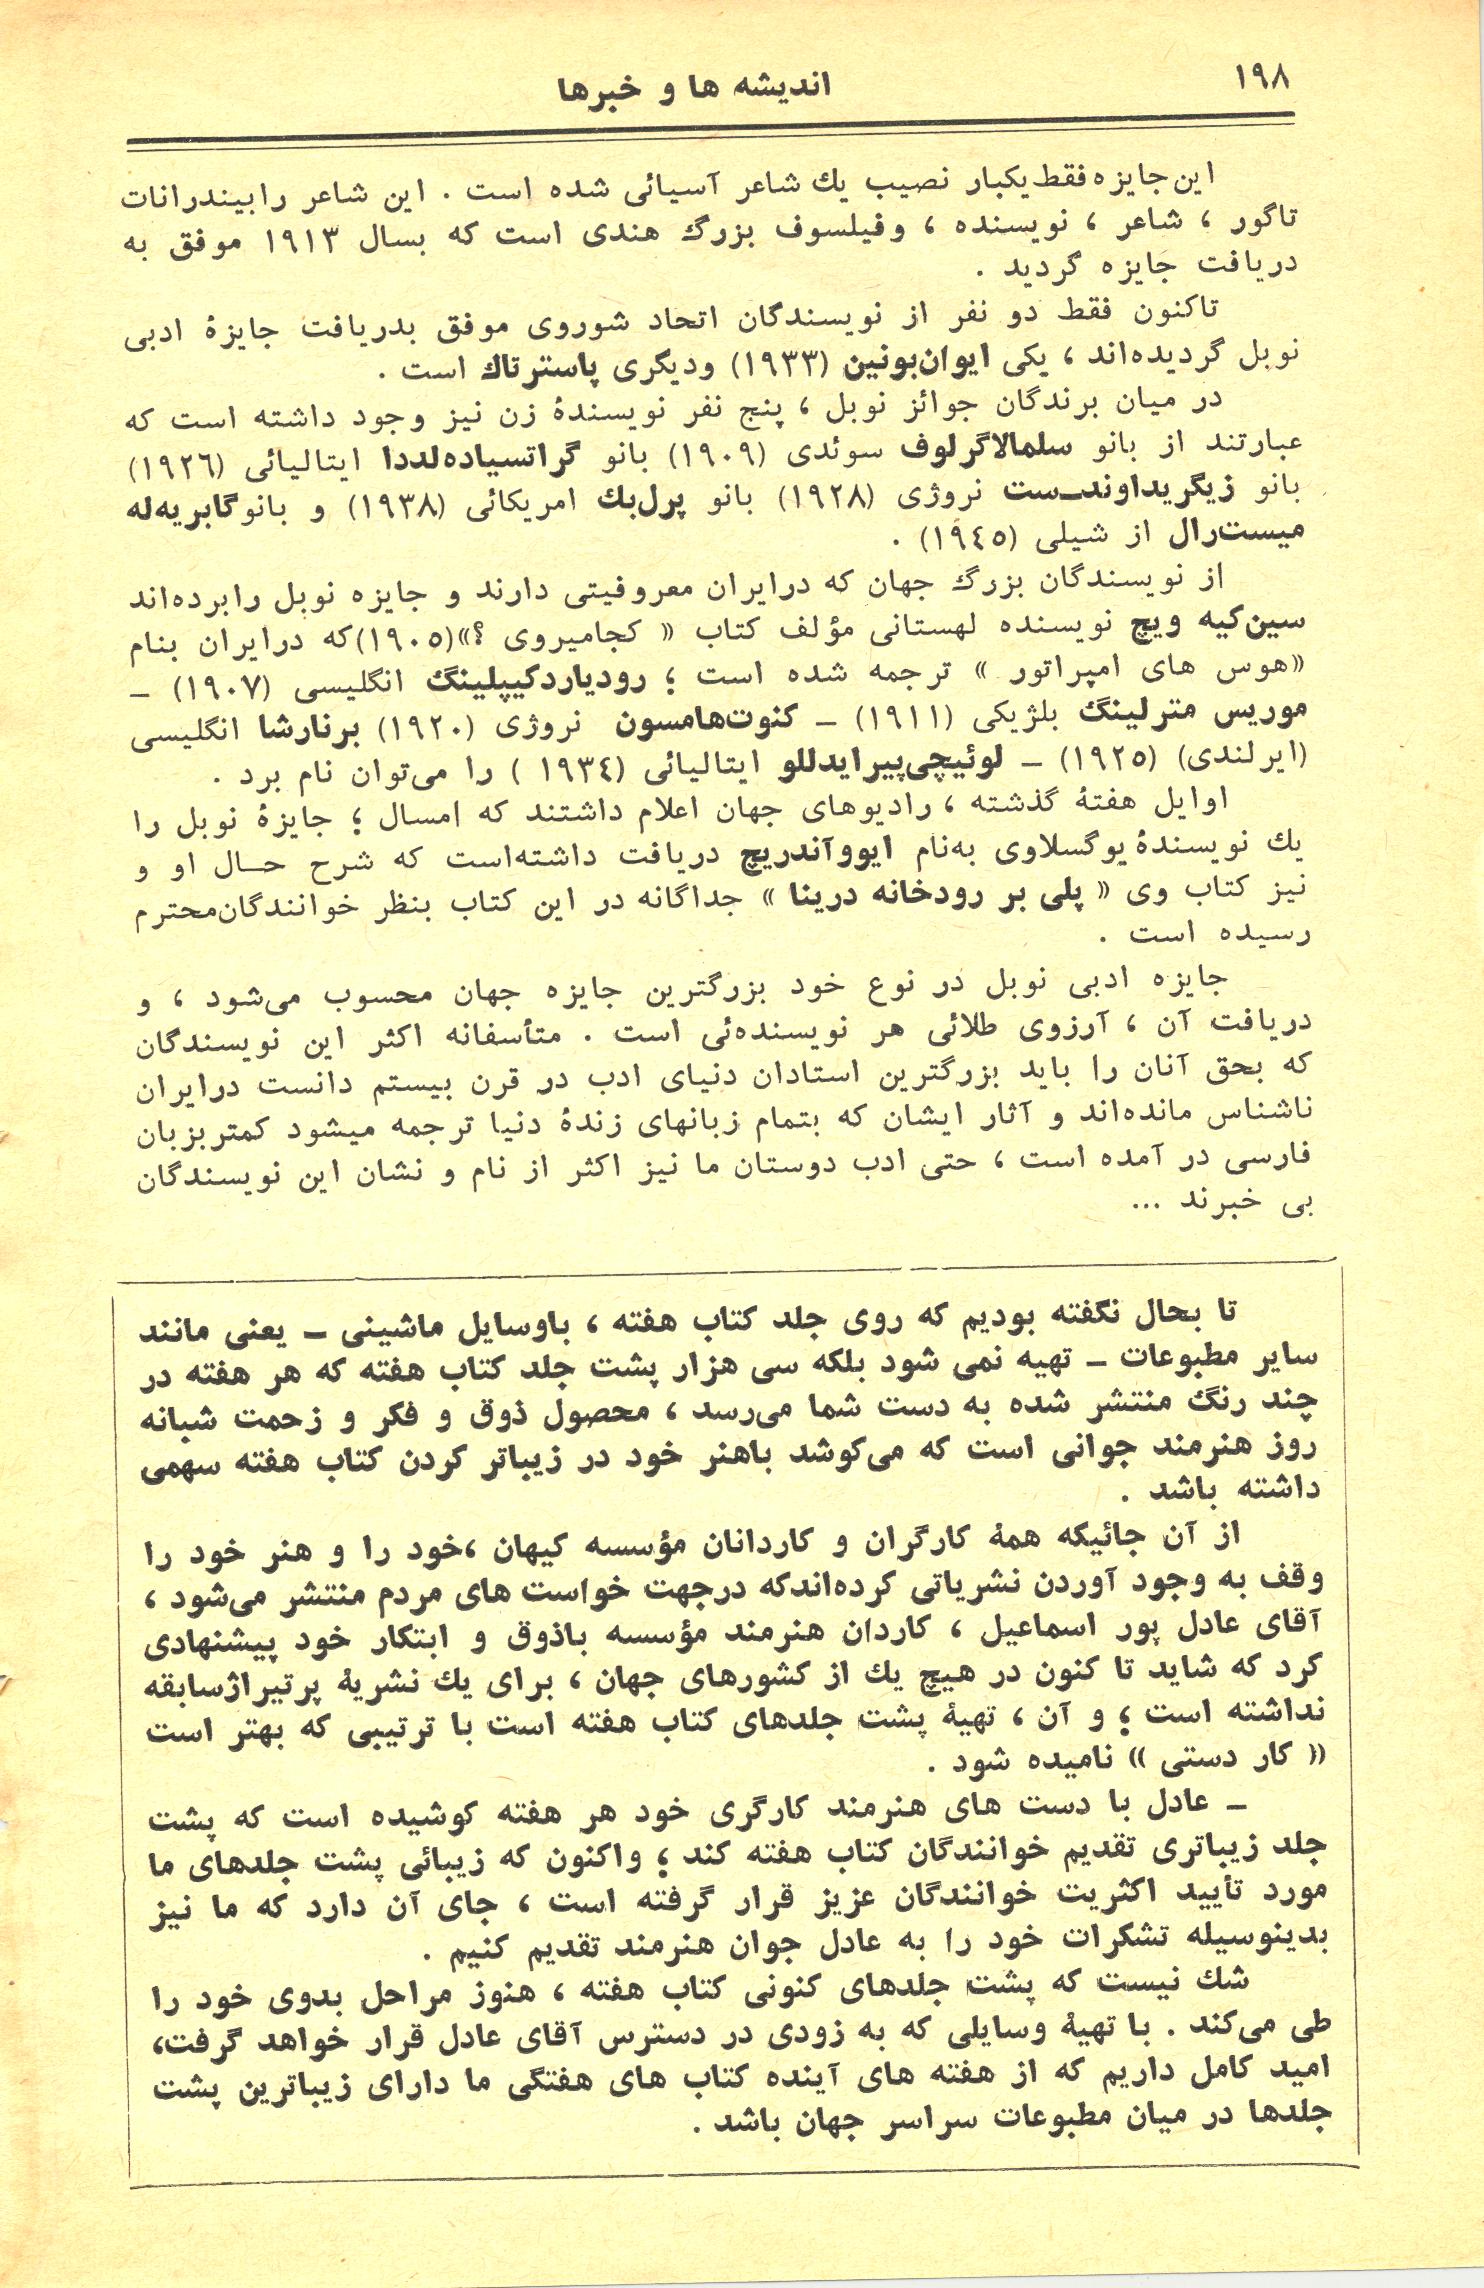 ۱۹۸
اندیشه ها و خبرها
این جایزه فقط یکبار نصیب یك شاعر آسیائی شده است . این شاعر رابیندرانات
تاگور ، شاعر ، نویسنده ، وفیلسوف بزرگ هندی است که بسال ۱۹۱۳ موفق به
دریافت جایزه گردید .
تاکنون فقط دو نفر از نویسندگان اتحاد شوروی موفق بدریافت جایزهٔ ادبی
نوبل گردیده‌اند ، یکی ایوان‌بونین (۱۹۳۳) ودیگری پاسترتاك است .
در میان برندگان جوائز نوبل ، پنج نفر نویسندهٔ زن نیز وجود داشته است که
عبارتند از بانو سلمالاگرلوف سوئدی (۱۹۰۹) بانو گراتسیاده‌لددا ایتالیائی (۱۹۲٦)
بانو زیگریداوندـست نروژی (۱۹۲۸) بانو پرل‌بك امریکائی (۱۹۳۸) و بانو گابریه‌له
میست‌رال از شیلی (۱۹٤٥) .
از نویسندگان بزرگ جهان که درایران معروفیتی دارند و جایزه نوبل رابرده‌اند
سین‌کیه ویچ نویسنده لهستانی مؤلف کتاب « کجامیروی ؟»(۱۹۰٥)که درایران بنام
«هوس های امپراتور » ترجمه شده است ؛ رودیاردکیپلینگ انگلیسی (۱۹۰۷) –
موریس مترلینگ بلژیکی (۱۹۱۱) – کنوت‌هامسون نروژی (۱۹۲۰) برنارشا انگلیسی
(ایرلندی) (۱۹۲٥) – لوئیچی‌پیرایدللو ایتالیائی (۱۹۳٤ ) را می‌توان نام برد .
اوایل هفتهٔ گذشته ، رادیوهای جهان اعلام داشتند که امسال ؛ جایزهٔ نوبل را
یك نویسندهٔ یوگسلاوی به‌نام ایووآندریچ دریافت داشته‌است که شرح حـال او و
نیز کتاب وی « پلی بر رودخانه درینا » جداگانه در این کتاب بنظر خوانندگان‌محترم
رسیده است .
جایزه ادبی نوبل در نوع خود بزرگترین جایزه جهان محسوب می‌شود ، و
دریافت آن ، آرزوی طلائی هر نویسنده‌ئی است . متأسفانه اکثر این نویسندگان
که بحق آنان را باید بزرگترین استادان دنیای ادب در قرن بیستم دانست درایران
ناشناس مانده‌اند و آثار ایشان که بتمام زبانهای زندهٔ دنیا ترجمه میشود کمتربزبان
فارسی در آمده است ، حتی ادب دوستان ما نیز اکثر از نام و نشان این نویسندگان
بی خبرند ...
تا بحال نگفته بودیم که روی جلد کتاب هفته ، باوسایل ماشینی – یعنی مانند
سایر مطبوعات – تهیه نمی شود بلکه سی هزار پشت جلد کتاب هفته که هر هفته در
چند رنگ منتشر شده به دست شما می‌رسد ، محصول ذوق و فکر و زحمت شبانه
روز هنرمند جوانی است که می‌کوشد باهنر خود در زیباتر کردن کتاب هفته سهمی
داشته باشد .
از آن جائیکه همهٔ کارگران و کاردانان مؤسسه کیهان ،خود را و هنر خود را
وقف به وجود آوردن نشریاتی کرده‌اندکه درجهت خواست های مردم منتشر می‌شود ،
آقای عادل پور اسماعیل ، کاردان هنرمند مؤسسه باذوق و ابتکار خود پیشنهادی
کرد که شاید تا کنون در هیچ یك از کشورهای جهان ، برای یك نشریهٔ پرتیراژسابقه
نداشته است ؛ و آن ، تهیهٔ پشت جلدهای کتاب هفته است با ترتیبی که بهتر است
« کار دستی » نامیده شود .
– عادل با دست های هنرمند کارگری خود هر هفته کوشیده است که پشت
جلد زیباتری تقدیم خوانندگان کتاب هفته کند ؛ واکنون که زیبائی پشت جلدهای ما
مورد تأیید اکثریت خوانندگان عزیز قرار گرفته است ، جای آن دارد که ما نیز
بدینوسیله تشکرات خود را به عادل جوان هنرمند تقدیم کنیم .
شك نیست که پشت جلدهای کنونی کتاب هفته ، هنوز مراحل بدوی خود را
طی می‌کند . با تهیهٔ وسایلی که به زودی در دسترس آقای عادل قرار خواهد گرفت،
امید کامل داریم که از هفته های آینده کتاب های هفتگی ما دارای زیباترین پشت
جلدها در میان مطبوعات سراسر جهان باشد .